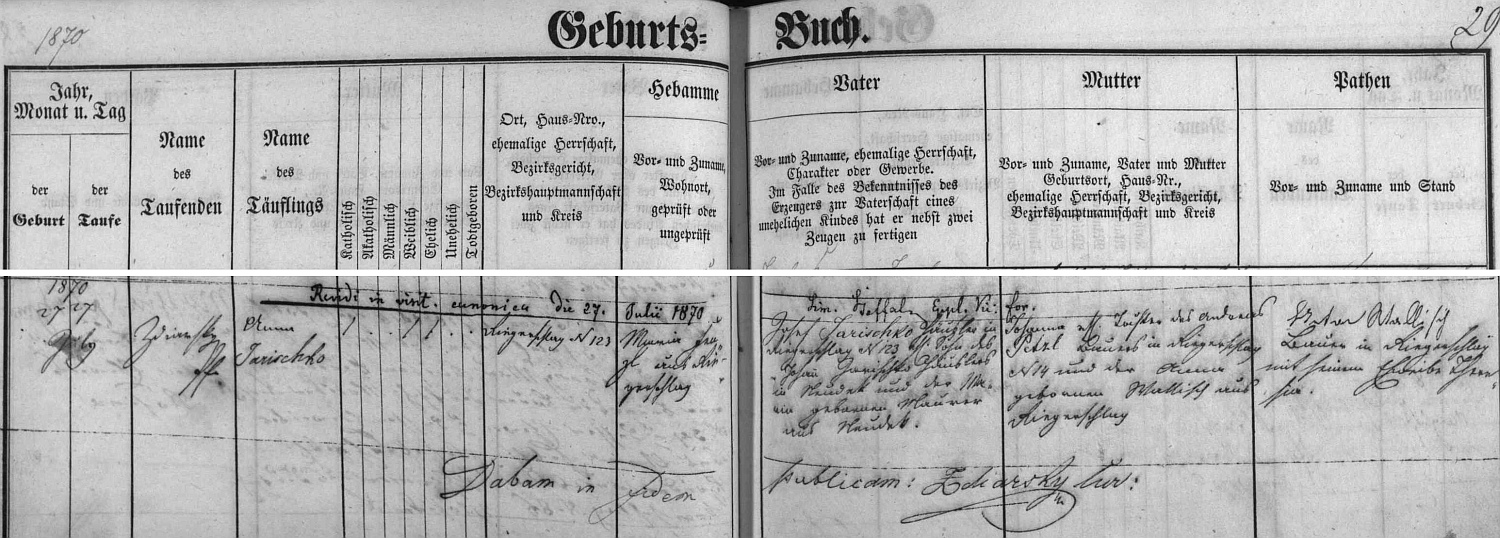 1870
Geburts=
Buch.
29
Jahr,
Monat u. Tag
der
Geburt
der
Taufe
Name
des
Taufenden
Name
des
Täuflings
Katholisch
Akatholisch
Männlich
Weiblich
Ehelich
Unehelich
Todtgeboren
Ort, Haus-Nro.,
ehemalige Herrschaft,
Bezirksgericht,
Bezirkshauptmannschaft
und Kreis
Hebamme
Vor- und Zuname,
Wohnort,
geprüft oder
ungeprüft
Vater
Vor- und Zuname, ehemalige Herrschaft,
Charakter oder Gewerbe.
Im Falle des Bekenntnisses des
Erzeugers zur Vaterschaft eines
unehelichen Kindes hat er nebst zwei
Zeugen zu fertigen
Mutter
Vor- und Zuname, Vater und Mutter
Geburtsort, Haus-Nr.,
ehemalige Herrschaft, Bezirksgericht,
Bezirkshauptmannschaft und Kreis
Pathen
Vor- und Zuname und Stand
in visit. canonica die 27. Julii 1870
1870
27 27
July
Zdiarsky
Anna
Jarischko
Riegerschlag N 123
Maria
aus Rie-
gerschlag
Josef Jarischko Häusler in
Riegerschlag N 123 Sohn des
Johan Jarischko Häuslers
in Neudek und der Ma-
ria gebornen Maurer
aus Neudek.
Johanna Tochter des Andreas
Petzl Bauers in Riegerschlag
N 14 und der Anna
gebornen Wallisch aus
Riegerschlag
Wallisch
Bauer in Riegerschlag
mit seinem Eheweibe There-
sia.
Dabam in fidem
publicam: Zdiarsky